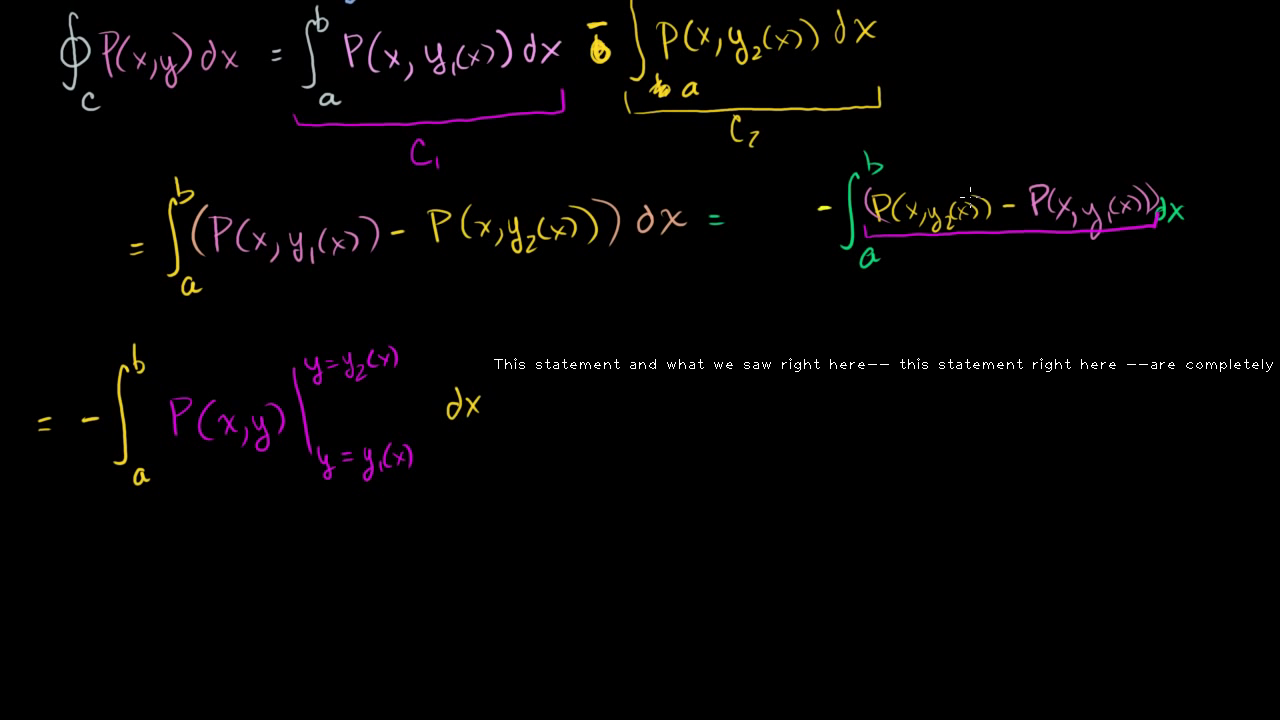 ∮_C P(x,y) dx = ∫_a^b P(x, y₁(x)) dx - ∫_a P(x, y₂(x)) dx
C₁ C₂
= ∫_a^b (P(x, y₁(x)) - P(x, y₂(x))) dx = - ∫_a^b (P(x, y₂(x)) - P(x, y₁(x))) dx
= - ∫_a^b P(x,y) |_{y = y₁(x)}^{y = y₂(x)} dx
This statement and what we saw right here-- this statement right here --are completely